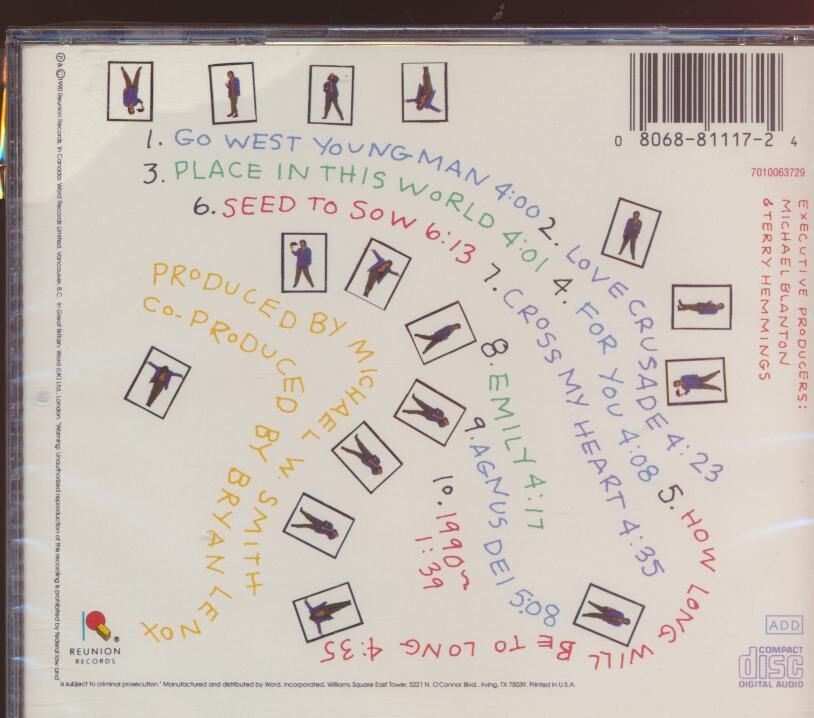 1. GO WEST YOUNG MAN 4:00
2. LOVE CRUSADE 4:23
3. PLACE IN THIS WORLD 4:01
4. FOR YOU 4:08
5. HOW LONG WILL BE TO LONG 4:35
6. SEED TO SOW 6:13
7. CROSS MY HEART 4:35
8. EMILY 4:17
9. AGNUS DEI 5:08
10. 1990
1:39
PRODUCED BY MICHAEL W. SMITH
CO-PRODUCED BY BRYAN LENOX
0 8068-81117-2 4
7010063729
EXECUTIVE PRODUCERS:
MICHAEL BLANTON
& TERRY HEMMINGS
REUNION
RECORDS
ADD
COMPACT
disc
DIGITAL AUDIO
℗ & © 1990 Reunion Records. In Canada: Word Records Limited, Vancouver, B.C. In Great Britain: Word (UK) Ltd., London. "Warning: Unauthorized reproduction of this recording is prohibited by federal law and
is subject to criminal prosecution." Manufactured and distributed by Word, Incorporated, Williams Square East Tower, 5221 N. O'Connor Blvd., Irving, TX 75039. Printed in U.S.A.